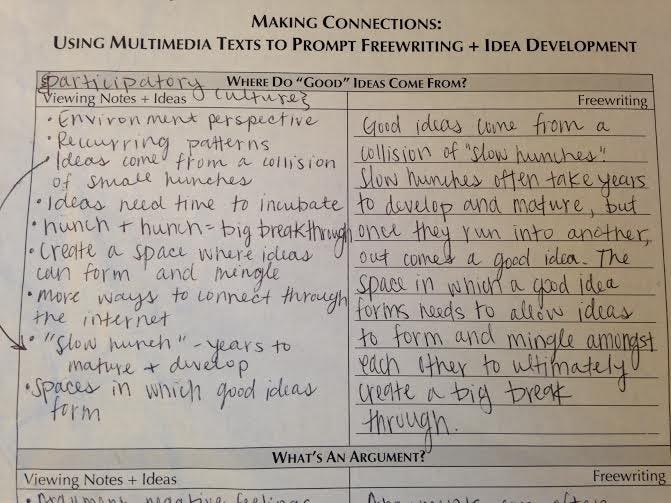 MAKING CONNECTIONS:
USING MULTIMEDIA TEXTS TO PROMPT FREEWRITING + IDEA DEVELOPMENT
{participatory culture}
WHERE DO "GOOD" IDEAS COME FROM?
Viewing Notes + Ideas
• Environment perspective
• Recurring patterns
• Ideas come from a collision
of small hunches
• Ideas need time to incubate
• hunch + hunch = big breakthrough
• Create a space where ideas
can form and mingle
• more ways to connect through
the internet
• "Slow hunch" - years to
mature + develop
• Spaces in which good ideas
form
Freewriting
Good ideas come from a
collision of "slow hunches".
Slow hunches often take years
to develop and mature, but
once they run into another,
out comes a good idea. The
space in which a good idea
forms needs to allow ideas
to form and mingle amongst
each other to ultimately
create a big break
through.
WHAT'S AN ARGUMENT?
Viewing Notes + Ideas
Freewriting
• Argument negative feelings